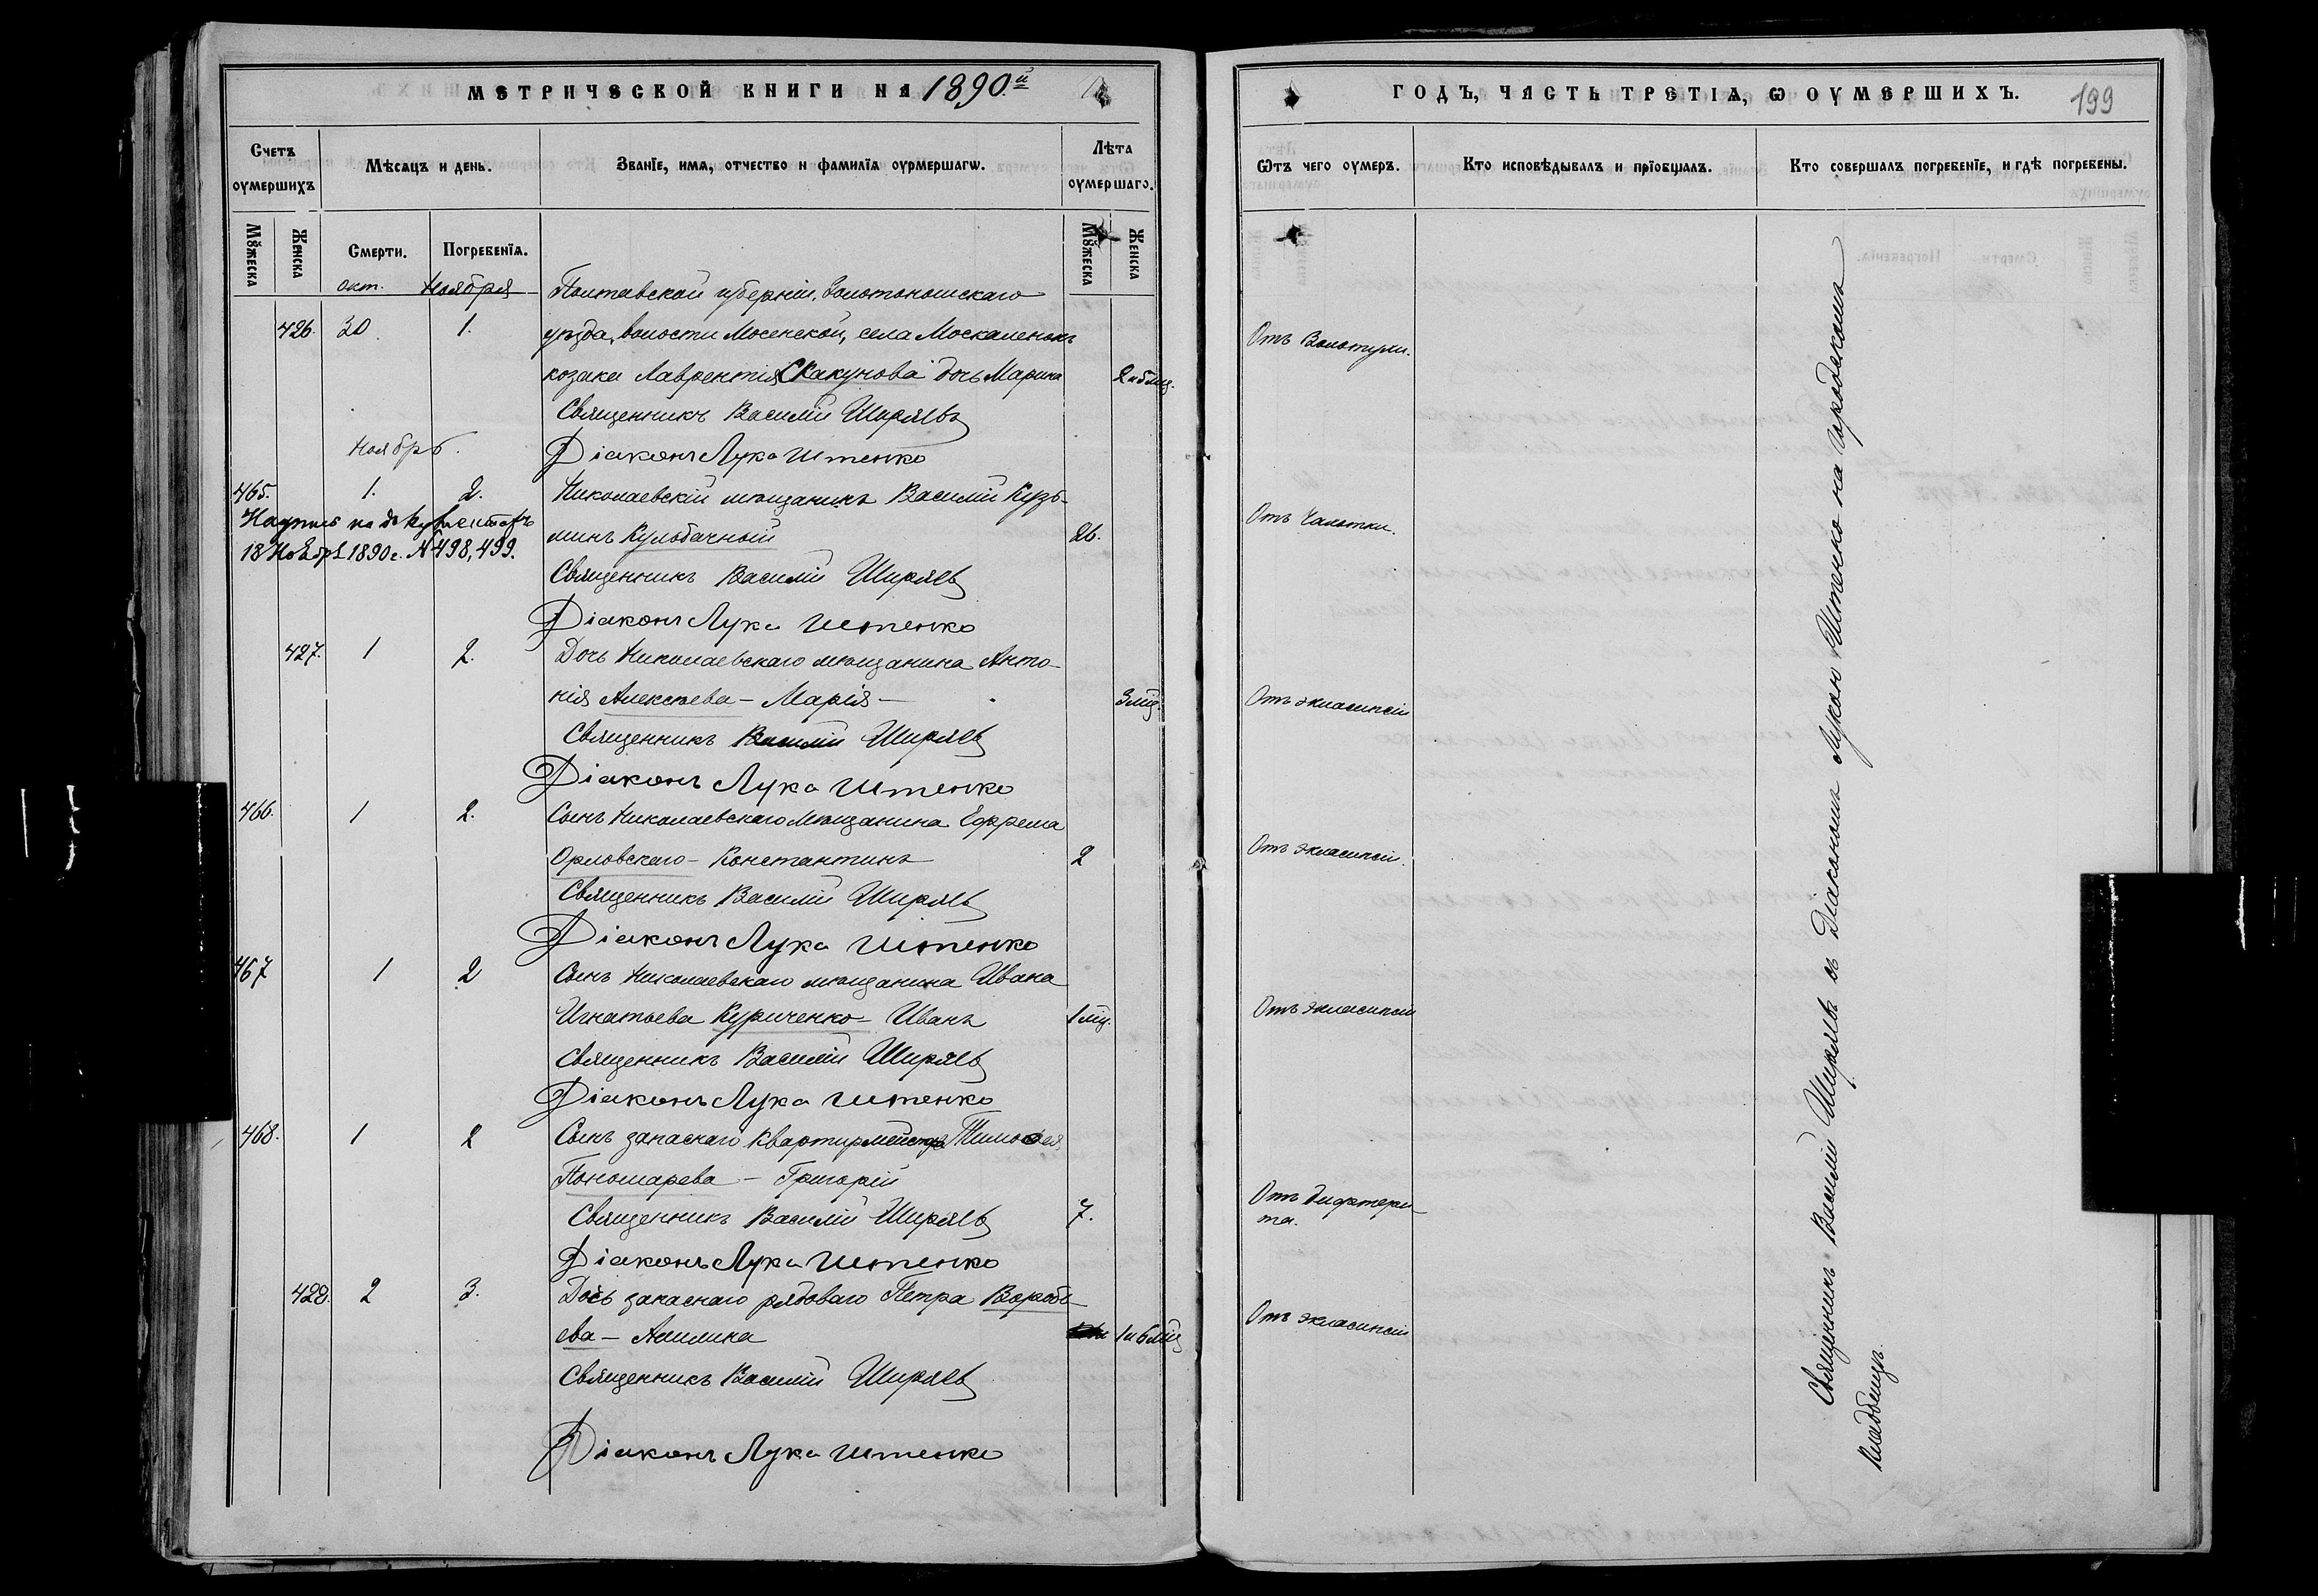 МЕТРИЧЕСКОЙ КНИГИ НА 1890.й
Счетъ оумершихъ
Мѣсяцъ и день.
Званїе, имя, отчество и фамилїя оурмершагѡ.
Лѣта оумершаго.
Мꙋжеска
Женска
Смерти.
Погребенїя.
Мꙋжеска
Женска
окт. Ноября
Полтавской губерніи, Золотоношскаго
426. 30. 1. уѣзда, волости Мосенской, села Москаленокъ
козака Лаврентія Скакунова дочь Марина
Священникъ Василій Ширяевъ
Ноябрь.
Діаконъ Лука Штенко
465. 1. 2. Николаевскій мѣщанинъ Василій Кузь-
минъ Кулобачный 26.
18 Ноября 1890 г. №498, 499.
Священникъ Василій Ширяевъ
Діаконъ Лука Штенко
427. 1 2. Дочь Николаевскаго мѣщанина Анто-
нія Алексѣева - Марія - 3 мѣц.
Священникъ Василій Ширяевъ
Діаконъ Лука Штенко
466. 1 2. Сынъ Николаевскаго мѣщанина Ефрема
Орловскаго - Константинъ 2
Священникъ Василій Ширяевъ
Діаконъ Лука Штенко
467 1 2 Сынъ Николаевскаго мѣщанина Ивана
Игнатьева Куриченко - Иванъ 1 мѣц.
Священникъ Василій Ширяевъ
Діаконъ Лука Штенко
468. 1 2 Сынъ запаснаго квартирмейстра Тимофея
Пономарева - Григорій
Священникъ Василій Ширяевъ 7.
Діаконъ Лука Штенко
428. 2 3. Дочь запаснаго рядоваго Петра Воробь-
ева - Акилина 1 и 6 мѣц
Священникъ Василій Ширяевъ
Діаконъ Лука Штенко
ГОДЪ, ЧАСТЬ ТРЕТІЯ, Ѡ ОУМЕРШИХЪ.
199
Ѿтъ чего оумеръ.
Кто исповѣдывалъ и прїобщалъ.
Кто совершалъ погребенїе, и гдѣ погребены.
Отъ Золотухи.
Отъ Чахотки.
Отъ эклампсіи
Отъ эклампсіи.
Отъ эклампсіи
Отъ дифтери-
та.
Отъ эклампсіи
Священникъ Василій Ширяевъ съ Діакономъ Лукою Штенко на городскомъ
кладбищѣ.